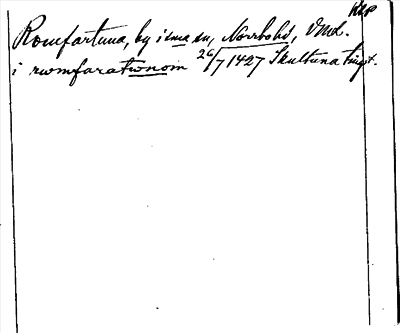 KLP
Romfartuna, by i sma sn, Norrbo hd, Vmd.
i rwmfaratwnom 26/7 1427 Skultuna tingt.